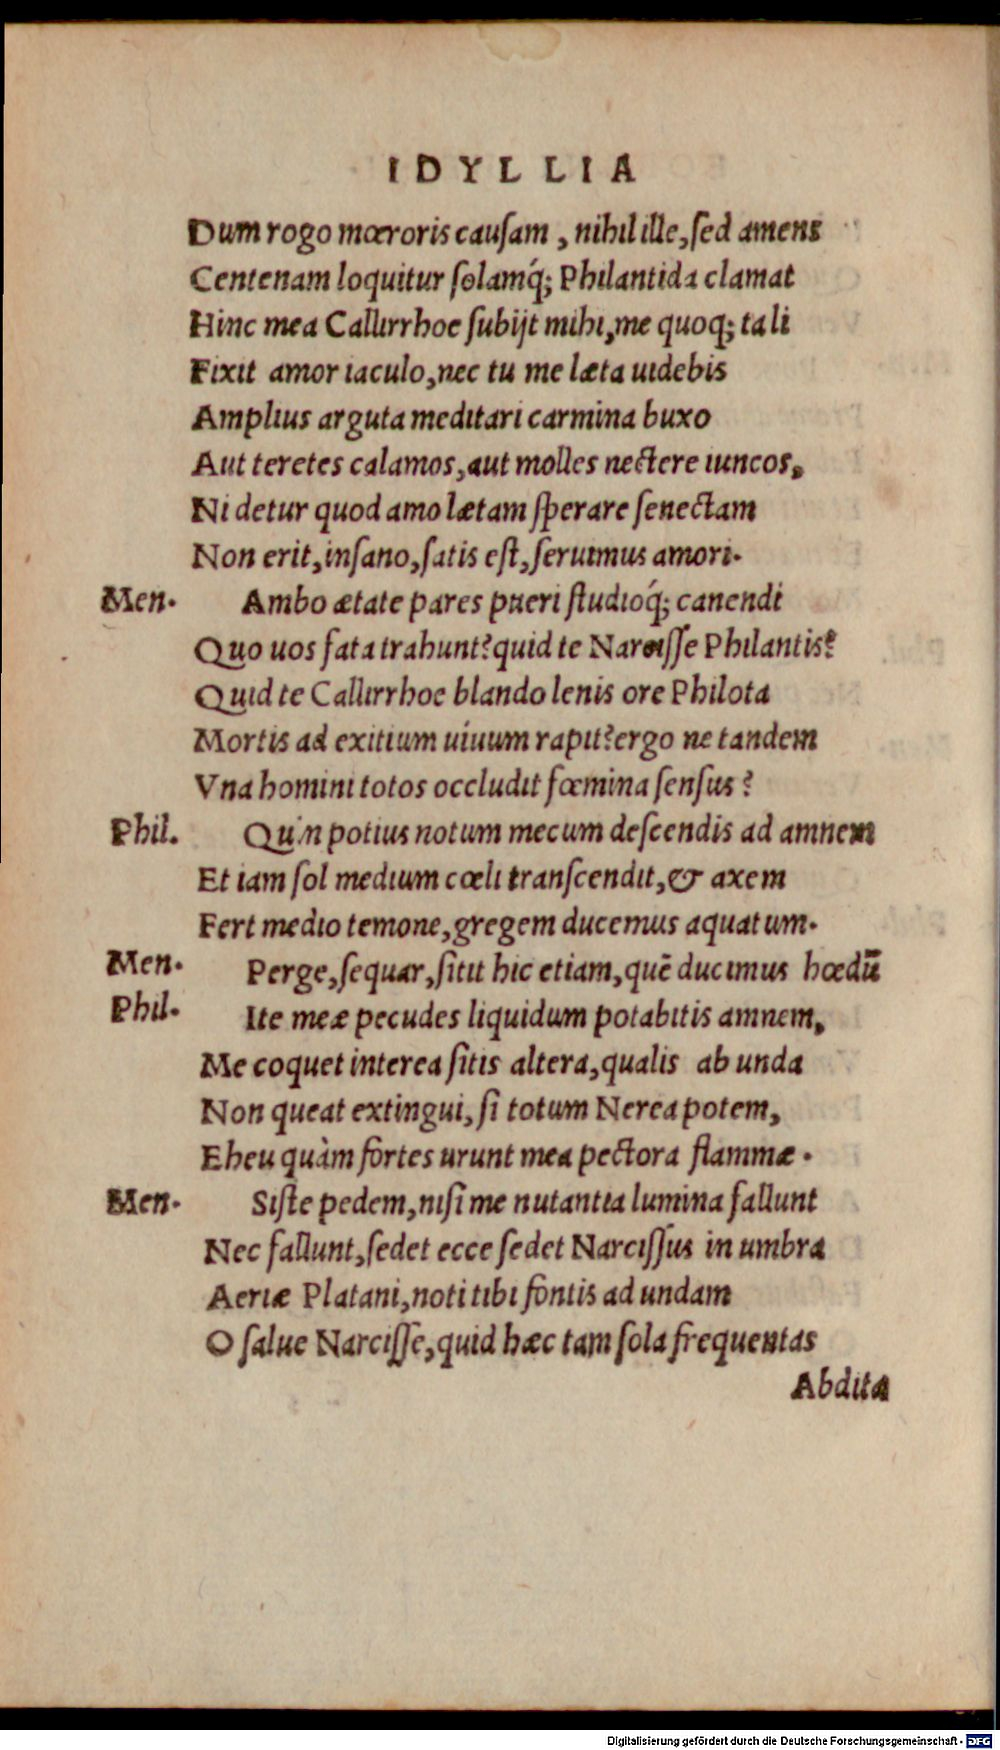 IDYLLIA
Dum rogo mœroris causam, nihil ille, sed amens
Centenam loquitur solamq́; Philantida clamat
Hinc mea Callirrhoe subijt mihi, me quoq; tali
Fixit amor iaculo, nec tu me læta uidebis
Amplius arguta meditari carmina buxo
Aut teretes calamos, aut molles nectere iuncos,
Ni detur quod amo lætam sperare senectam
Non erit, insano, satis est, seruimus amori.
Men. Ambo ætate pares pueri studioq́; canendi
Quo uos fata trahunt? quid te Narcisse Philantis?
Quid te Callirrhoe blando lenis ore Philota
Mortis ad exitium uiuum rapit? ergo ne tandem
Vna homini totos occludit fœmina sensus?
Phil. Quin potius notum mecum descendis ad amnem
Et iam sol medium cœli transcendit, & axem
Fert medio temone, gregem ducemus aquatum.
Men. Perge, sequar, sitit hic etiam, quē ducimus hœdū
Phil. Ite meæ pecudes liquidum potabitis amnem,
Me coquet interea sitis altera, qualis ab unda
Non queat extingui, si totum Nerea potem,
Eheu quàm fortes urunt mea pectora flammæ.
Men. Siste pedem, nisi me nutantia lumina fallunt
Nec fallunt, sedet ecce sedet Narcissus in umbra
Aeriæ Platani, noti tibi fontis ad undam
O salue Narcisse, quid hæc tam sola frequentas
Abdita
Digitalisierung gefördert durch die Deutsche Forschungsgemeinschaft - DFG